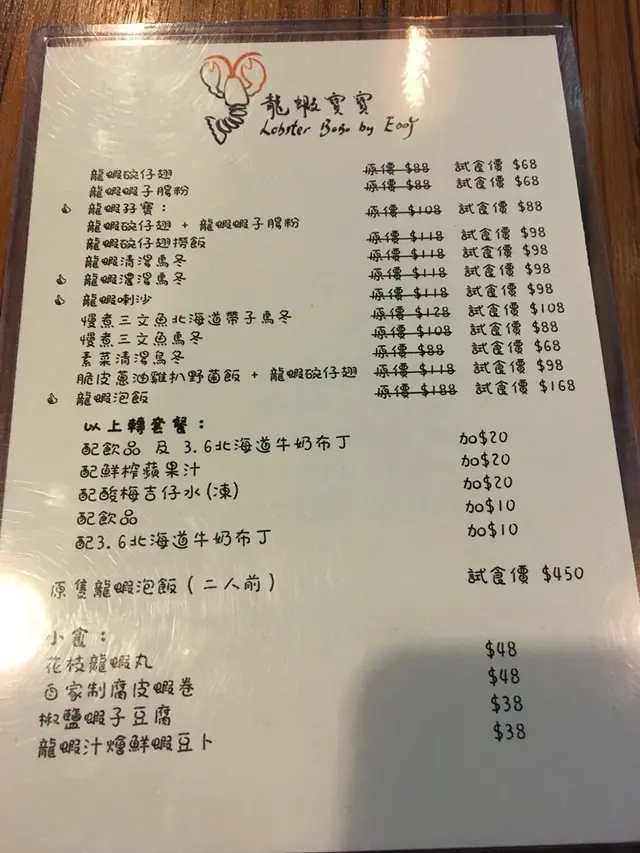 龍蝦寶寶
Lobster BoBo by Eooy
龍蝦碗仔翅 原價 $88 試食價 $68
龍蝦蝦子腸粉 原價 $88 試食價 $68
龍蝦孖寶： 原價 $108 試食價 $88
龍蝦碗仔翅 + 龍蝦蝦子腸粉
龍蝦碗仔翅撈飯 原價 $118 試食價 $98
龍蝦清湯烏冬 原價 $118 試食價 $98
龍蝦濃湯烏冬 原價 $118 試食價 $98
龍蝦喇沙 原價 $118 試食價 $98
慢煮三文魚北海道帶子烏冬 原價 $128 試食價 $108
慢煮三文魚烏冬 原價 $108 試食價 $88
素菜清湯烏冬 原價 $88 試食價 $68
脆皮蔥油雞扒野菌飯 + 龍蝦碗仔翅 原價 $118 試食價 $98
龍蝦泡飯 原價 $188 試食價 $168
以上轉套餐：
配飲品 及 3.6北海道牛奶布丁 加$20
配鮮榨蘋果汁 加$20
配酸梅吉仔水(凍) 加$20
配飲品 加$10
配3.6北海道牛奶布丁 加$10
原隻龍蝦泡飯(二人前) 試食價 $450
小食：
花枝龍蝦丸 $48
自家制腐皮蝦卷 $48
椒鹽蝦子豆腐 $38
龍蝦汁燴鮮蝦豆卜 $38